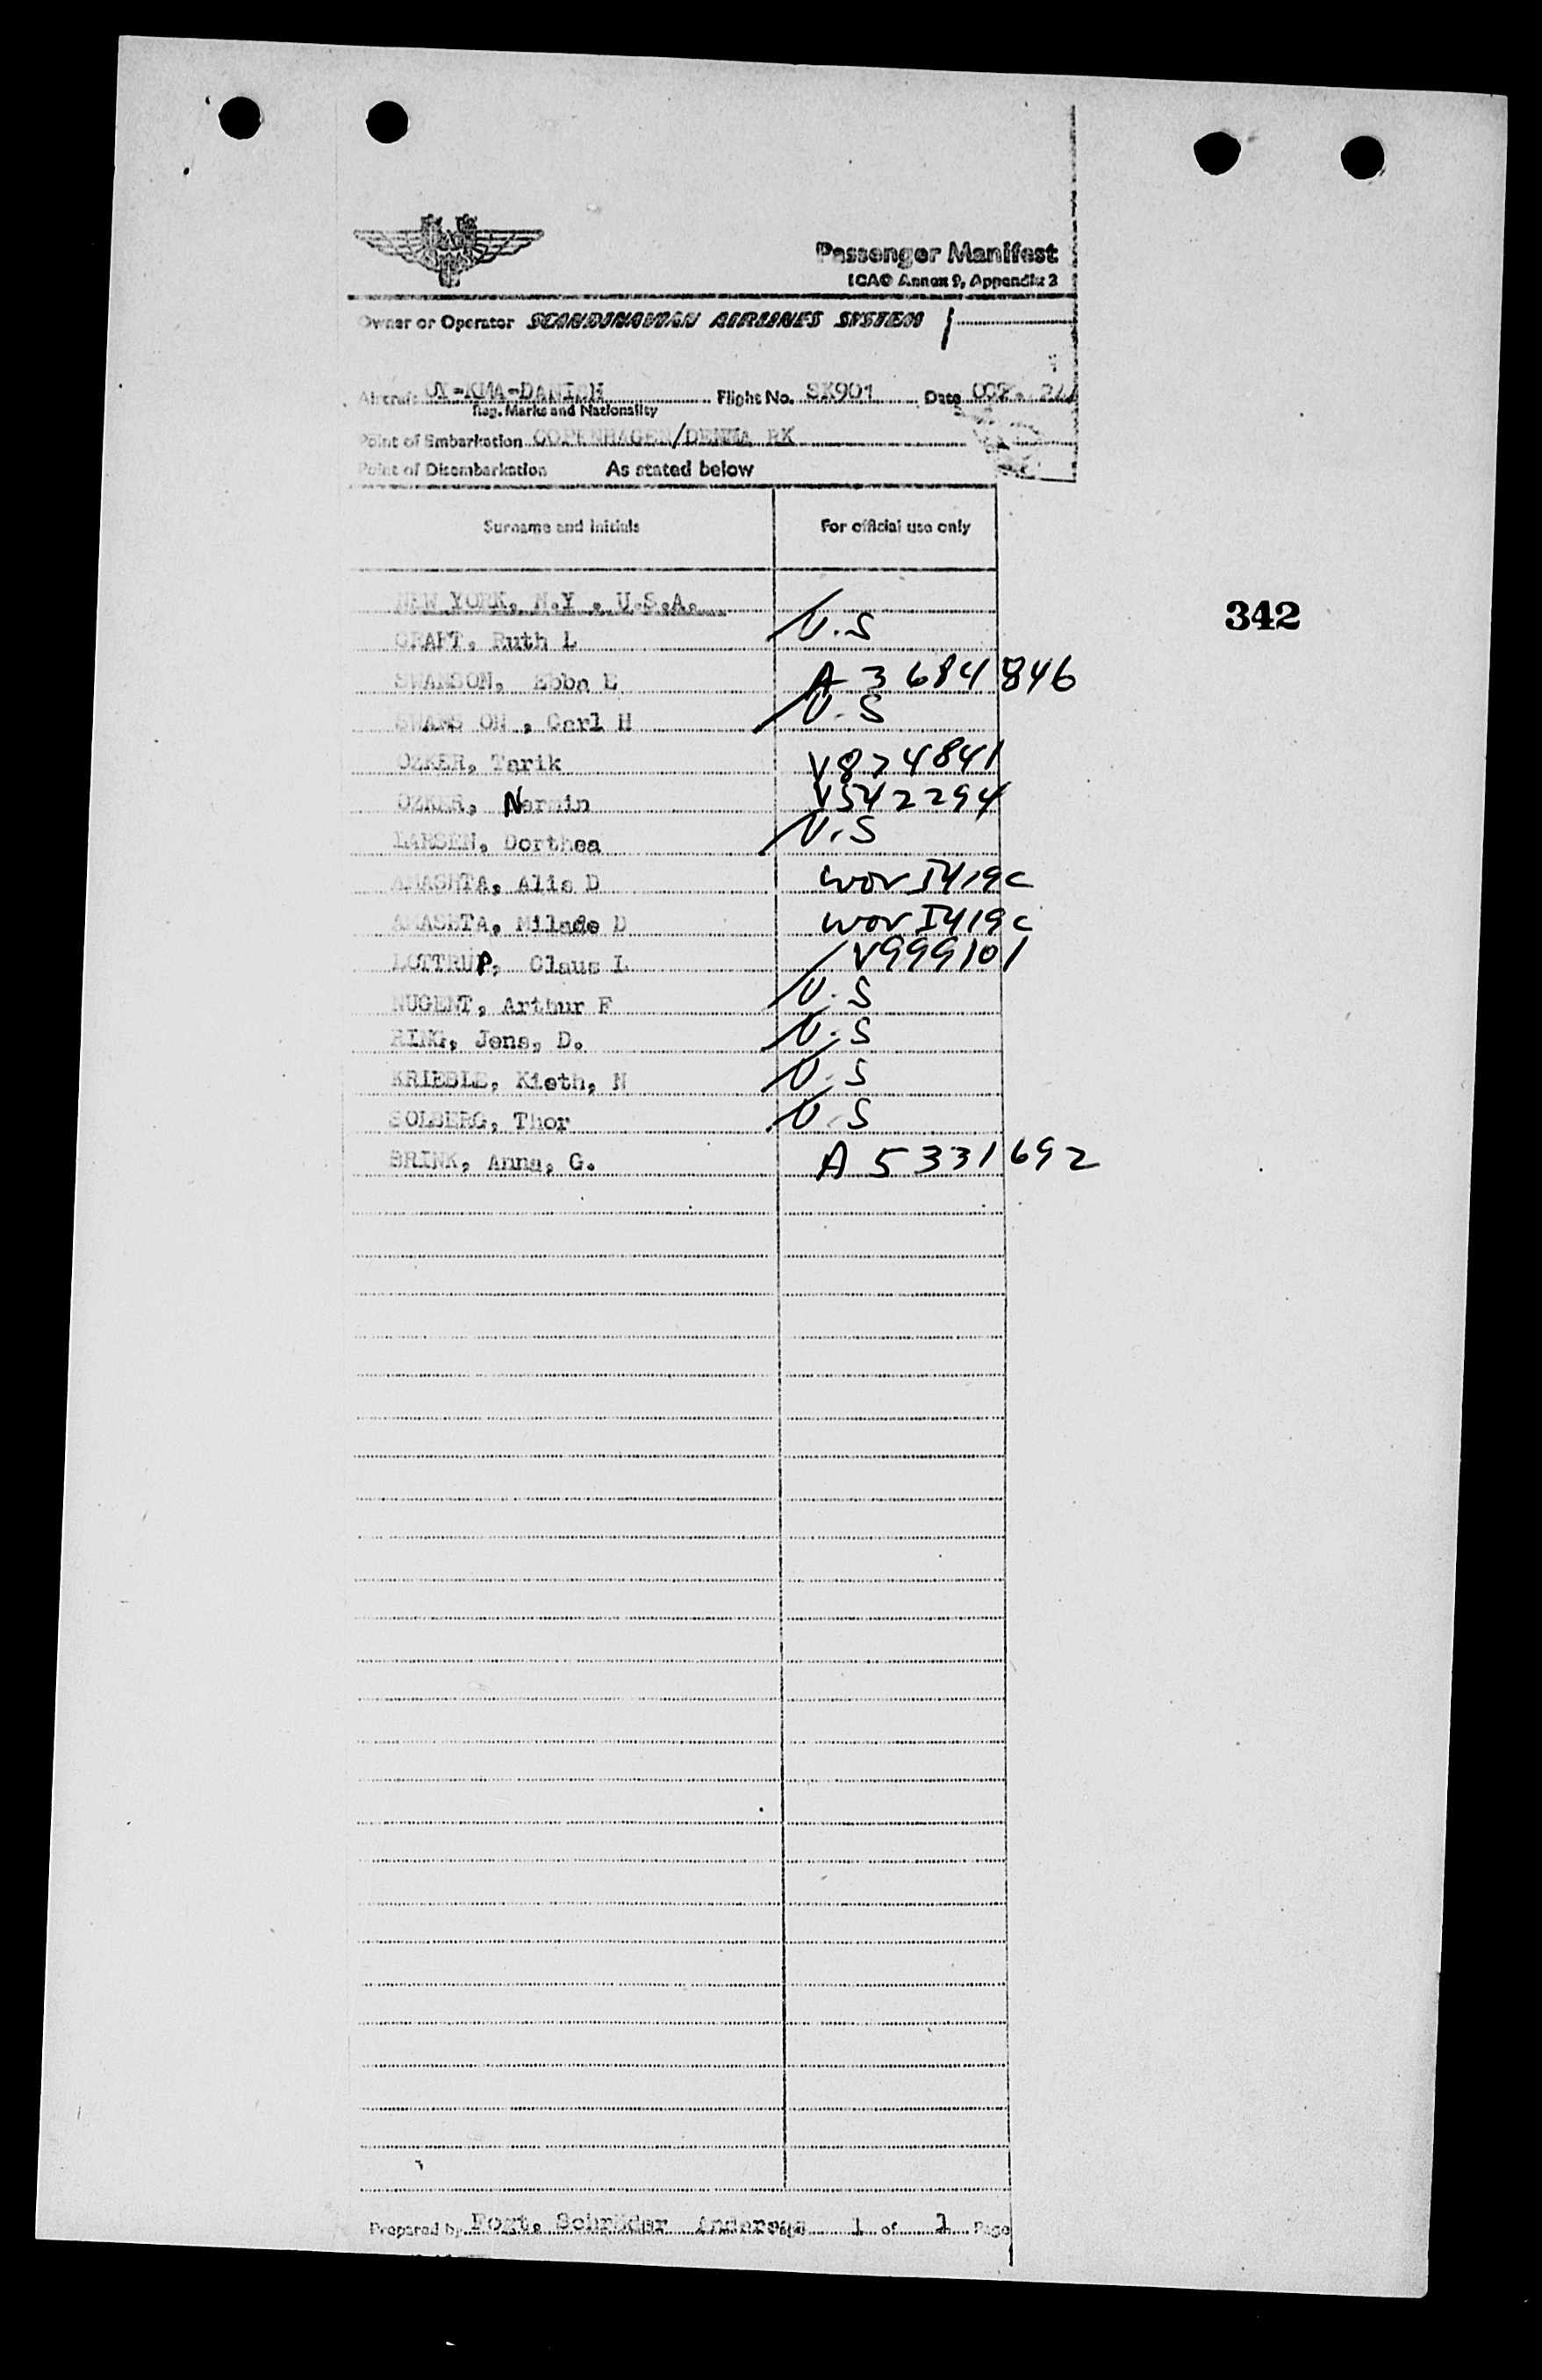 Passenger Manifest
ICAO Annex 9, Appendix 2
Owner or Operator SCANDINAVIAN AIRLINES SYSTEM
Aircraft OY-KMA-DANISH Flight No. SK901 Date
Reg. Marks and Nationality
Point of Embarkation COPENHAGEN/DENMA RK
Point of Disembarkation As stated below
Surname and initials For official use only
NEW YORK, N.Y. U.S.A.
342
CRAFT, Ruth L U.S
SWANSON, Ebba E A 3 684 846
SWANS ON, Carl H U.S
OZKER, Tarik V874841
OZKER, Nermin V542294
LARSEN, Dorthea U.S
AMASHTA, Alia D wor I419c
AMASHTA, Milade D wor I419c
LOTTRUP, Claus L V999101
NUGENT, Arthur F U.S
RING, Jens, D. U.S
KRIEBLE, Kieth, N U.S
SOLBERG, Thor U.S
BRINK, Anna, G. A 5 331 692
Prepared by 1 of 1 Page